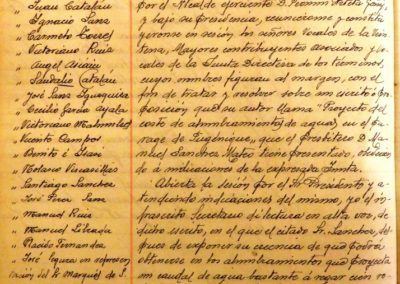 " Juan Catalán
" Ignacio Sanz
" Carmelo Torres
" Victoriano Ruiz
" Angel Asiáin
" Sandalio Catalán
" José Sanz
" Cecilio García Ayala
" Victoriano
" Vicente Campos
" Benito
" Nolasco Varasillas
" Santiago Sanchez
" José Sanz
" Manuel Ruiz
" Manuel Librada
" Placido Fernandez
" José Segura en represen
tación del Sr Marqués de S.
por el Alcalde ejerciente D.
bajo su presidencia, reunieronse y constitu
yeronse en sesión los señores Vocales de la
Mayores contribuyentes asociados y vo
cales de la Junta Directiva de los terminos,
cuyos nombres figuran al margen, con el
fin de tratar y resolver sobre un escrito ó pro
posición que su autor llama "Proyecto del
coste de alumbramiento de aguas, en el pa
rage de Fugénique, que el presbitero D. Ma
nuel Sanchez Mateo tiene presentado,
á indicaciones de la expresada Junta.
Abierta la sesión por el Sr Presidente y a-
tindiendo indicaciones del mismo, yo el in-
frascrito Secretario dí lectura en alta voz, de
dicho escrito, en el que el citado Sr. Sanchez, des-
pues de exponer su creencia de que podrá
obtenerse en los alumbramientos que proyecta
un caudal de agua bastante á regar con re-